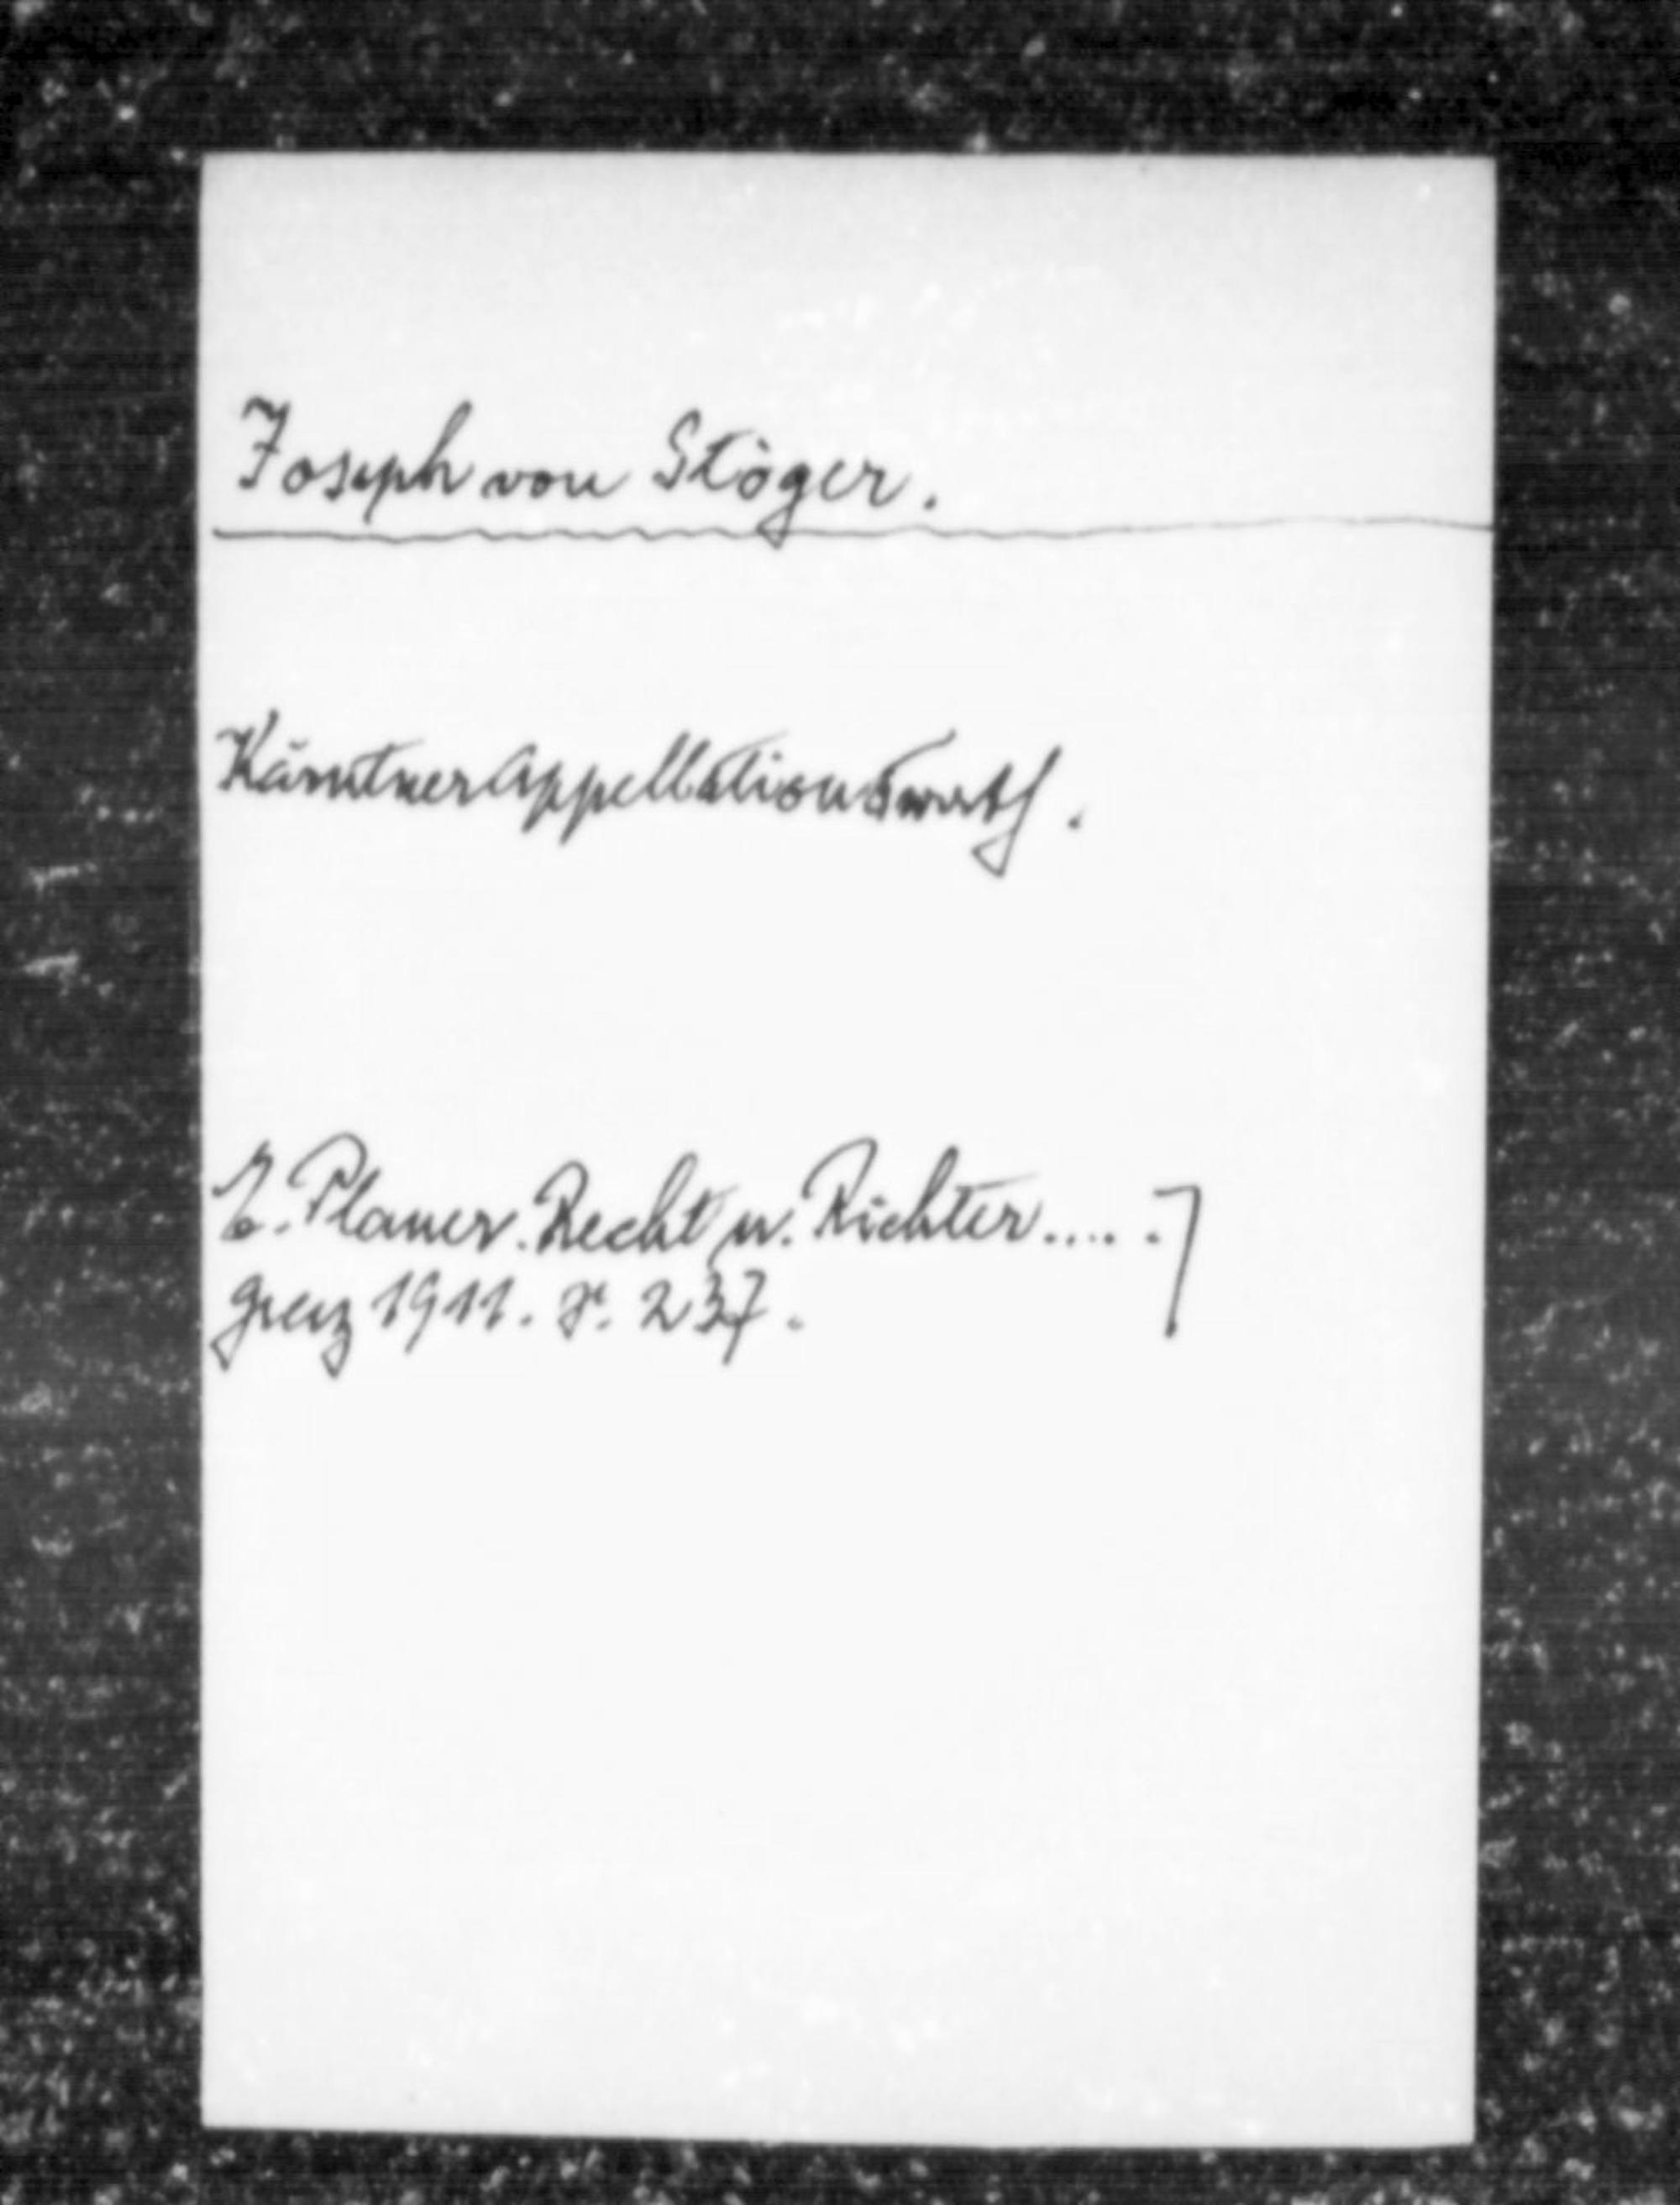 Joseph von Stöger.
Kärntner Appellationsrath.
E. Planer. Recht u. Richter.....]
Graz 1911. S. 237.